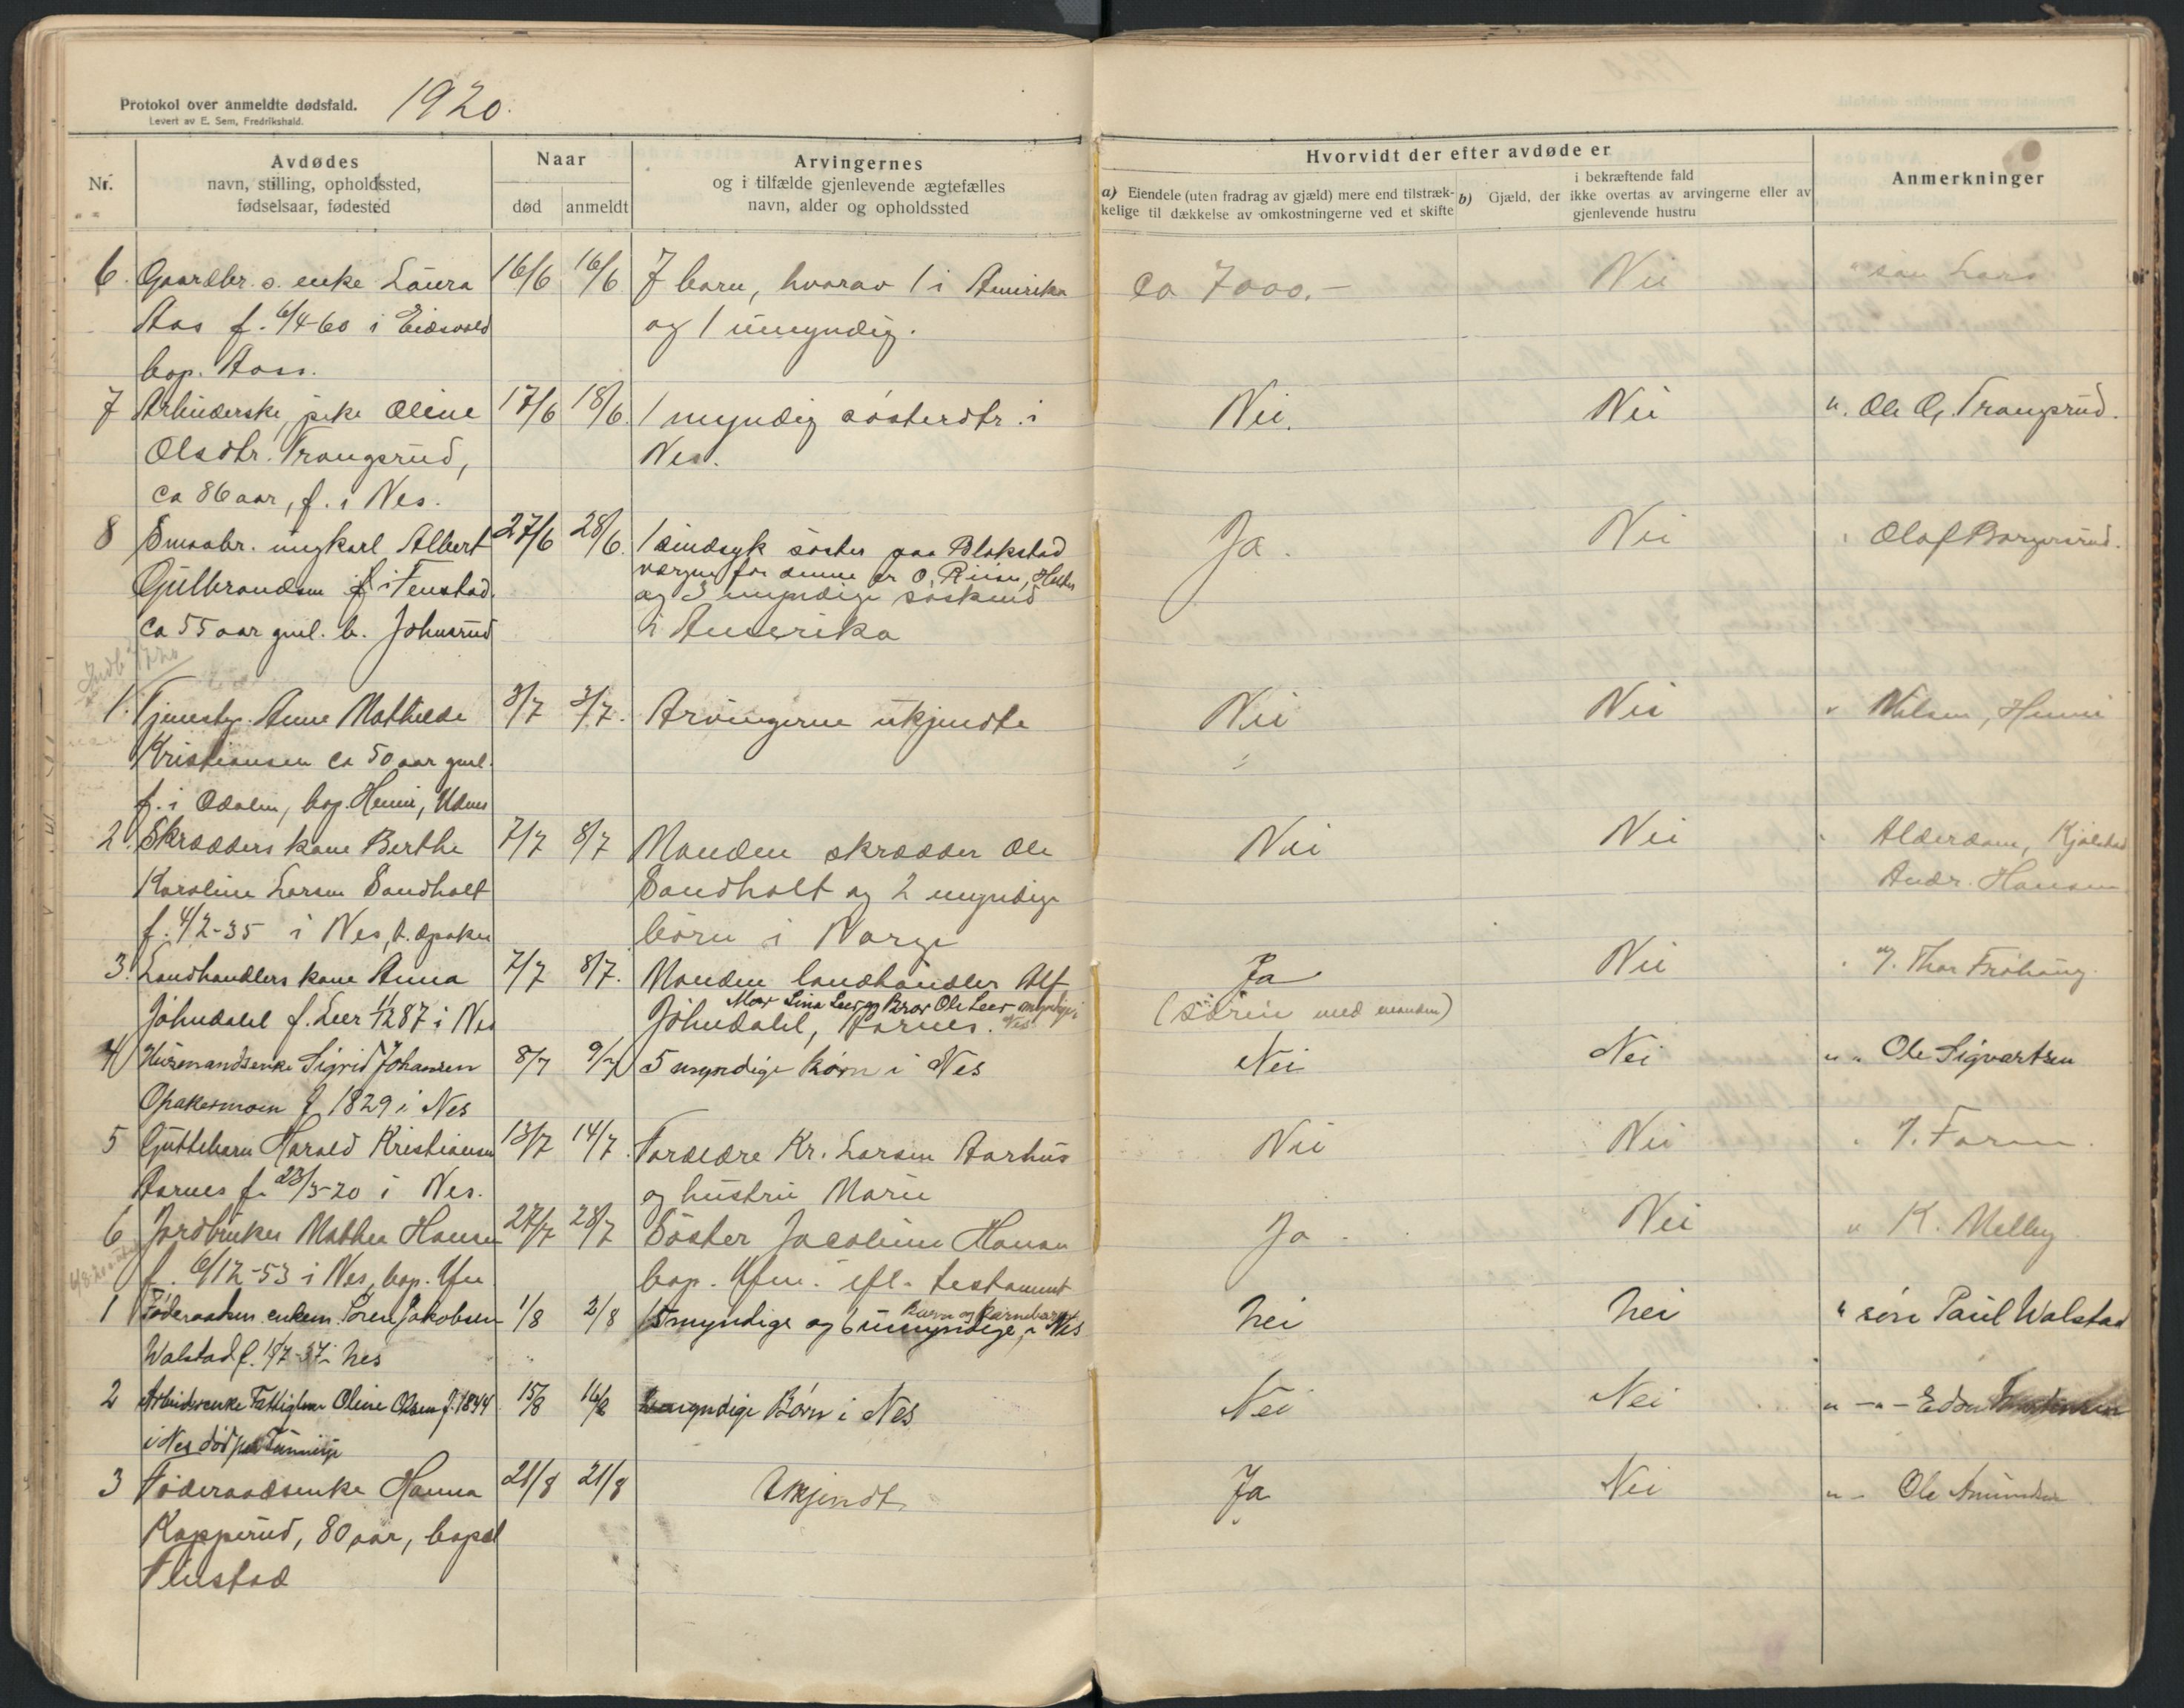 Protokol over anmeldte dødsfald.
Levert av E. Sem, Fredrikshald.
1920.
Nr.
Avdødes
navn, stilling, opholdssted,
fødselsaar, fødested
Naar
død
anmeldt
Arvingernes
og i tilfælde gjenlevende ægtefælles
navn, alder og opholdssted
Hvorvidt der efter avdøde er
a) Eiendele (uten fradrag av gjæld) mere end tilstræk-
kelige til dækkelse av omkostningerne ved et skifte
i bekræftende fald
b) Gjæld, der ikke overtas av arvingerne eller av
gjenlevende hustru
Anmerkninger
6. Gaardbr. s. enke Laura 16/6 16/6 7 barn, hvorav 1 i Amerika ca 7000.- Nei " søn Lars
Aas f. 6/4-60 i Eidsvold og 1 umyndig.
bop. Aas.
7 Arbeiderske, pike Oline 17/6 18/6. 1 myndig søsterdtr. i Nei. Nei ". Ole O. Trangsrud.
Olsdtr. Trangsrud, Nes.
ca 86 aar, f. i Nes.
8 Smaabr. ungkarl Albert 27/6 28/6. 1 sindsyk søster paa Blakstad Ja. Nei Olaf Borgersrud.
værgen for denne er O. Riise,
Gulbrandsen f. i Fenstad. og 3 myndige søskend
ca 55 aar gml. b. Johnsrud i Amerika
1. Tjenestp. Anne Mathilde 3/7 3/7. Arvingerne ukjendte Nei Nei " Nilsen, Henni
Kristiansen ca 50 aar gml.
f. i Odalen, bop. Henni, Udnes
2. Skrædders kone Berthe 7/7 8/7 Manden skrædder Ole Nei Nei Alderdom, Kjølstad
Karoline Larsen Sandholt Sandholt og 2 myndige Andr. Hansen
f. 4/2-35 i Nes, b. Opaker børn i Norge
3. Landhandlers kone Anna 7/7 8/7. Manden landhandler Alf Ja Nei J. Thor Frøhaug.
Mor Lina Leer og Bror Ole Leer myndige i Nes
Johndahl f. Leer 1/12 87 i Nes Johndahl, Aarnes. (særeie med manden)
4 Husmandsenke Sigrid Johansen 8/7 9/7 5 myndige børn i Nes Nei Nei " " Ole Sigvartsen
Opakermoen f 1829 i Nes
5 Guttebarn Harald Kristiansen 13/7 14/7. Forældre Kr. Larsen Aarhus Nei Nei J. Farm.
Aarnes f. 23/3-20 i Nes. og hustru Marie
6 Jordbruker Mathea Hansen 27/7 28/7 Søster Jacobine Hansen Ja - Nei " K. Melby
f. 6/12-53 i Nes, bop. Ufen bop. Ufen. efl. testament
1 Føderaadsm. enkem. Søren Jakobsen 1/8 2/8 15 myndige og 6 umyndige, Barn og Barnebarn i Nes Nei Nei " søn Paul Walstad
Walstad f. 18/7-37 i Nes
2 Arbeiderenke Fattiglem Oline Olsen f. 1844 15/8 16/8 myndige Børn i Nes Nei Nei " -"-
i Nes død paa
3 Føderaadsenke Hanna 21/8 21/8 Ukjendt Ja Nei "- Ole Amundsen
Kopperud, 80 aar, bopæl
Fenstad